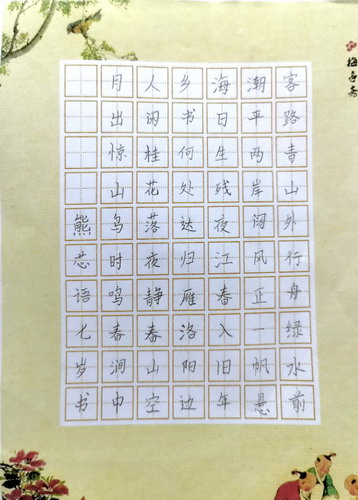 客路青山外行舟绿水前
潮平两岸阔风正一帆悬
海日生残夜江春入旧年
乡书何处达归雁洛阳边
人闲桂花落夜静春山空
月出惊山鸟时鸣春涧中
熊语七岁书